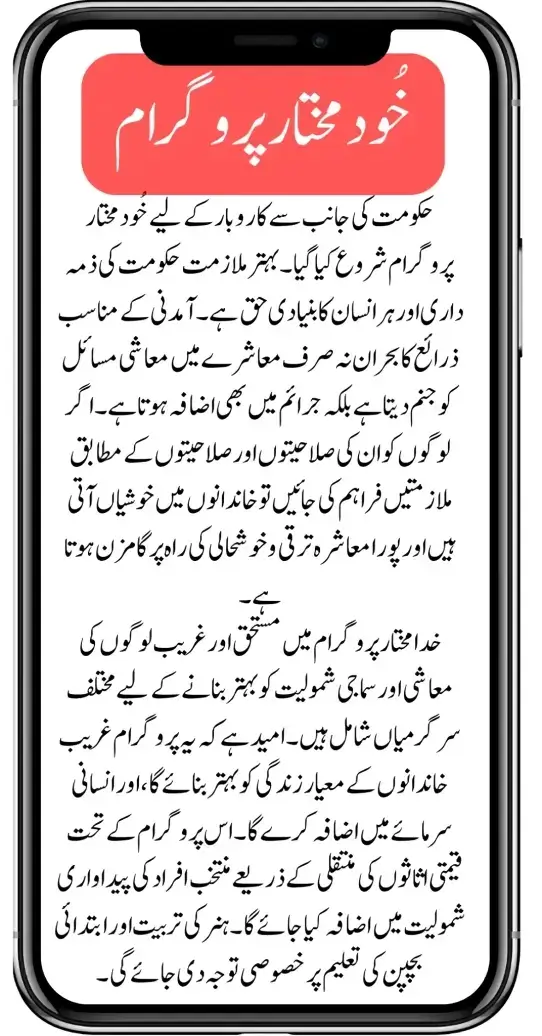 خُود مختار پروگرام
حکومت کی جانب سے کاروبار کے لیے خُود مختار
پروگرام شروع کیا گیا۔ بہتر ملازمت حکومت کی ذمہ
داری اور ہر انسان کا بنیادی حق ہے۔ آمدنی کے مناسب
ذرائع کا بحران نہ صرف معاشرے میں معاشی مسائل
کو جنم دیتا ہے بلکہ جرائم میں بھی اضافہ ہوتا ہے۔ اگر
لوگوں کو ان کی صلاحیتوں اور صلاحیتوں کے مطابق
ملازمتیں فراہم کی جائیں تو خاندانوں میں خوشیاں آتی
ہیں اور پورا معاشرہ ترقی و خوشحالی کی راہ پر گامزن ہوتا
ہے۔
خدا مختار پروگرام میں مستحق اور غریب لوگوں کی
معاشی اور سماجی شمولیت کو بہتر بنانے کے لیے مختلف
سرگرمیاں شامل ہیں۔ امید ہے کہ یہ پروگرام غریب
خاندانوں کے معیار زندگی کو بہتر بنائے گا، اور انسانی
سرمائے میں اضافہ کرے گا۔ اس پروگرام کے تحت
قیمتی اثاثوں کی منتقلی کے ذریعے منتخب افراد کی پیداواری
شمولیت میں اضافہ کیا جائے گا۔ ہنر کی تربیت اور ابتدائی
بچپن کی تعلیم پر خصوصی توجہ دی جائے گی۔